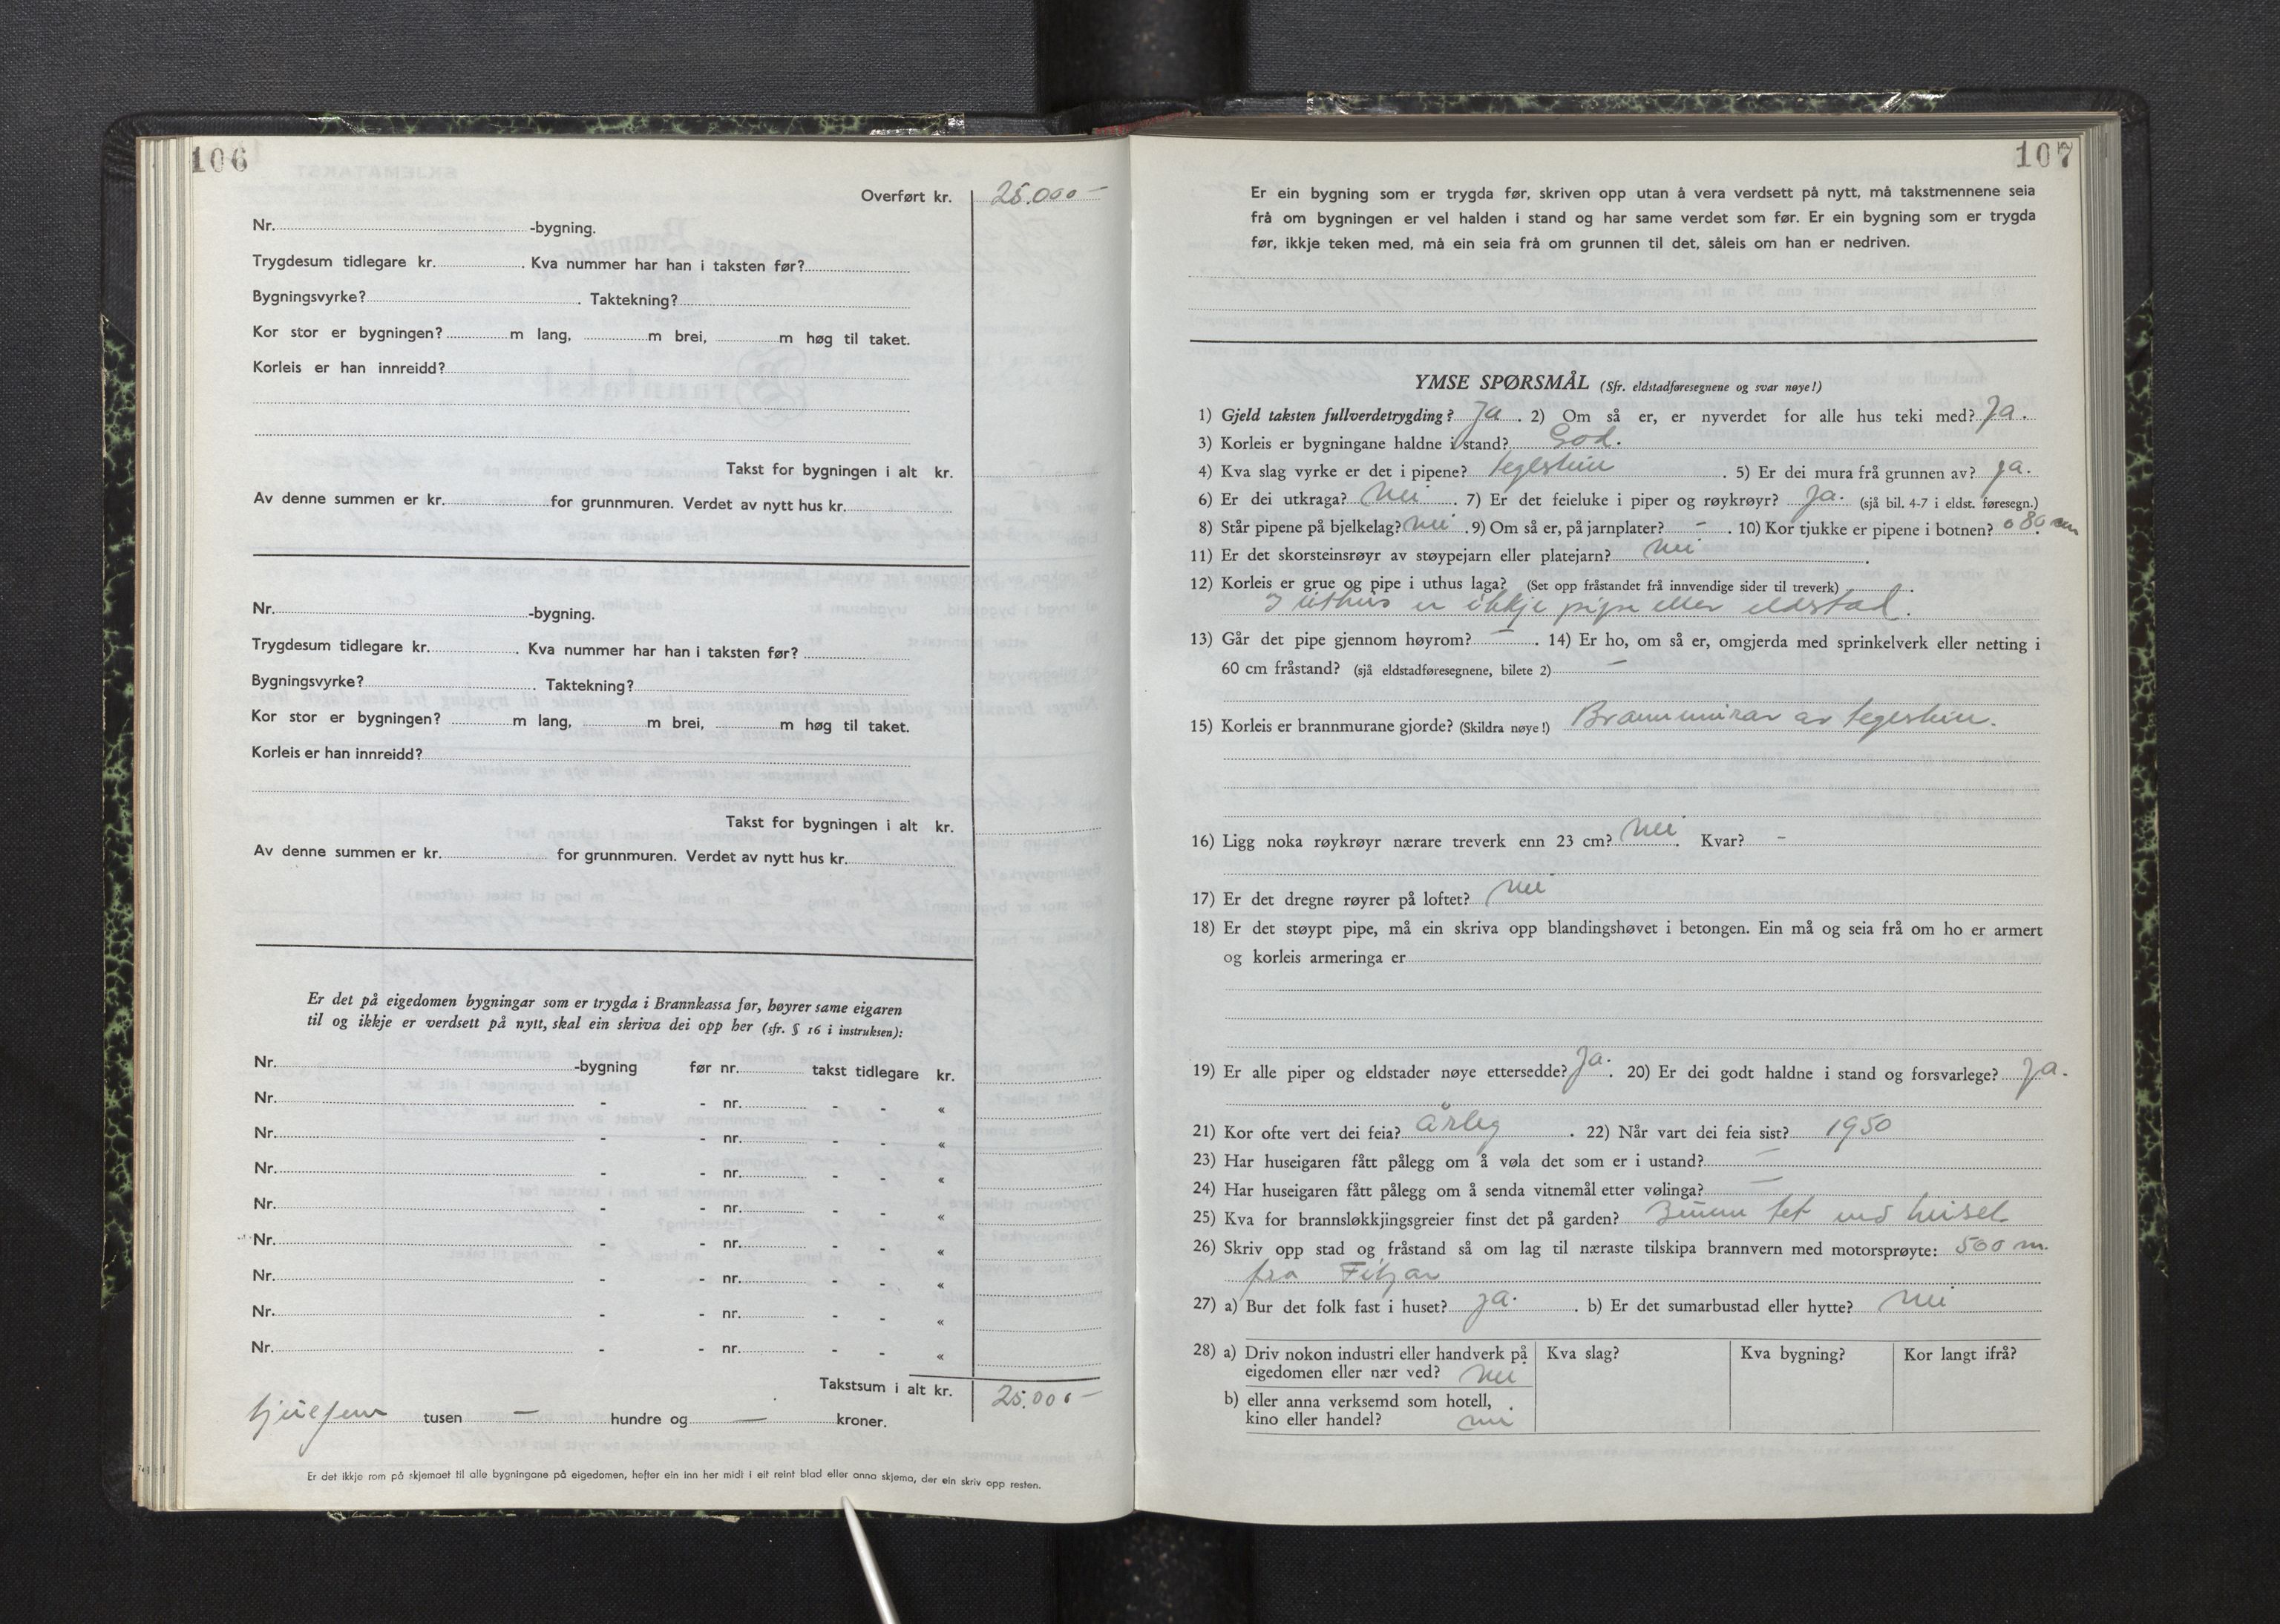 106
Overført kr. 25.000 –
Nr. -bygning.
Trygdesum tidlegare kr. . Kva nummer har han i taksten før?
Bygningsvyrke? . Taktekning?
Kor stor er bygningen? m lang, m brei, m høg til taket.
Korleis er han innreidd?
Takst for bygningen i alt kr.
Av denne summen er kr. for grunnmuren. Verdet av nytt hus kr.
Nr. -bygning.
Trygdesum tidlegare kr. . Kva nummer har han i taksten før?
Bygningsvyrke? . Taktekning?
Kor stor er bygningen? m lang, m brei, m høg til taket.
Korleis er han innreidd?
Takst for bygningen i alt kr.
Av denne summen er kr. for grunnmuren. Verdet av nytt hus kr.
Er det på eigedomen bygningar som er trygda i Brannkassa før, høyrer same eigaren
til og ikkje er verdsett på nytt, skal ein skriva dei opp her (sfr. § 16 i instruksen):
Nr. -bygning før nr. takst tidlegare kr.
Nr. - - nr. - - «
Nr. - - nr. - - «
Nr. - - nr. - - «
Nr. - - nr. - - «
Nr. - - nr. - - «
Nr. - - nr. - - «
Nr. - - nr. - - «
Nr. - - nr. - - «
Takstsum i alt kr. 25.000 –
tjuefem tusen – hundre og – kroner.
Er det ikkje rom på skjemaet til alle bygningane på eigedomen, hefter ein inn her midt i eit reint blad eller anna skjema, der ein skriv opp resten.
107
Er ein bygning som er trygda før, skriven opp utan å vera verdsett på nytt, må takstmennene seia
frå om bygningen er vel halden i stand og har same verdet som før. Er ein bygning som er trygda
før, ikkje teken med, må ein seia frå om grunnen til det, såleis om han er nedriven.
YMSE SPØRSMÅL (Sfr. eldstadføresegnene og svar nøye!)
1) Gjeld taksten fullverdetrygding? Ja . 2) Om så er, er nyverdet for alle hus teki med? Ja.
3) Korleis er bygningane haldne i stand? God.
4) Kva slag vyrke er det i pipene? teglstein . 5) Er dei mura frå grunnen av? Ja.
6) Er dei utkraga? Nei . 7) Er det feieluke i piper og røykrøyr? Ja. (sjå bil. 4-7 i eldst. føresegn.)
8) Står pipene på bjelkelag? nei . 9) Om så er, på jarnplater? – . 10) Kor tjukke er pipene i botnen? 080 cm
11) Er det skorsteinsrøyr av støypejarn eller platejarn? nei .
12) Korleis er grue og pipe i uthus laga? (Set opp fråstandet frå innvendige sider til treverk) .
I uthus er ikkje pipe eller eldstad.
13) Går det pipe gjennom høyrom? – . 14) Er ho, om så er, omgjerda med sprinkelverk eller netting i
60 cm fråstand? (sjå eldstadføresegnene, bilete 2) –
15) Korleis er brannmurane gjorde? (Skildra nøye!) Brannmurar av teglstein.
16) Ligg noka røykrøyr nærare treverk enn 23 cm? nei . Kvar? –
17) Er det dregne røyrer på loftet? nei
18) Er det støypt pipe, må ein skriva opp blandingshøvet i betongen. Ein må og seia frå om ho er armert
og korleis armeringa er
19) Er alle piper og eldstader nøye ettersedde? Ja. . 20) Er dei godt haldne i stand og forsvarlege? Ja.
21) Kor ofte vert dei feia? årleg . 22) Når vart dei feia sist? 1950
23) Har huseigaren fått pålegg om å vøla det som er i ustand? –
24) Har huseigaren fått pålegg om å senda vitnemål etter vølinga? –
25) Kva for brannsløkkjingsgreier finst det på garden? Brunn tet ved huset
26) Skriv opp stad og fråstand så om lag til næraste tilskipa brannvern med motorsprøyte: 500 m.
fra Fitjar
27) a) Bur det folk fast i huset? Ja. . b) Er det sumarbustad eller hytte? nei
28) a) Driv nokon industri eller handverk på
eigedomen eller nær ved? nei
Kva slag? Kva bygning? Kor langt ifrå?
b) eller anna verksemd som hotell,
kino eller handel? nei